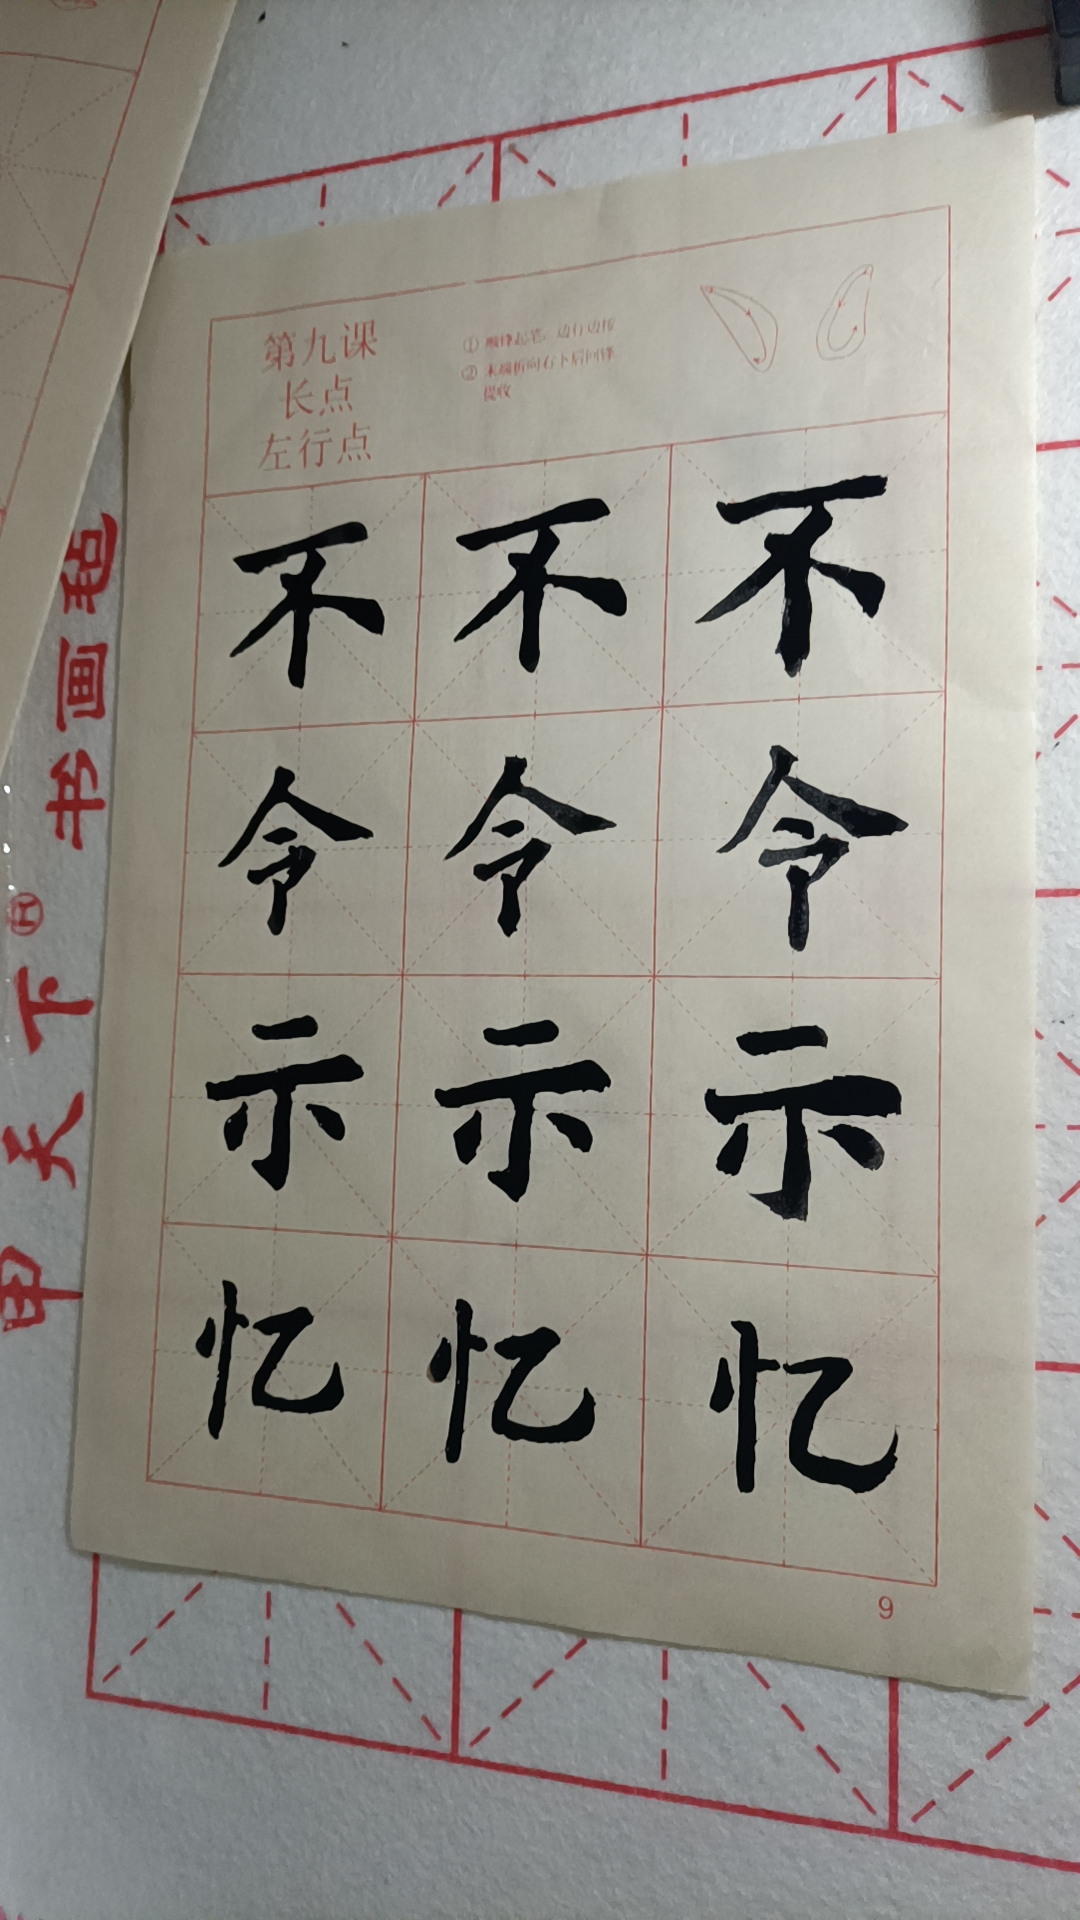 第九课
长点
左行点
① 顺锋起笔，边行边按
② 末端折向右下后回锋
提收
不 不 不
令 令 令
示 示 示
忆 忆 忆
9
书画毡
甲天下